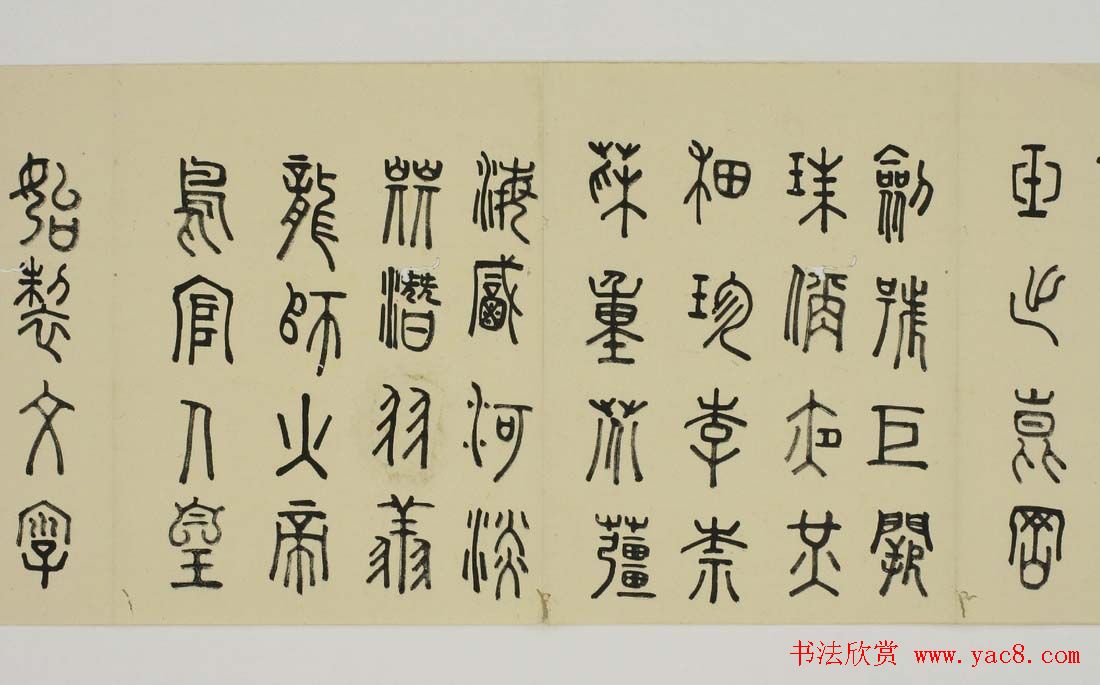 玉出崑岡
劍號巨闕
珠偁夜光
果珍李柰
菜重芥薑
海鹹河淡
鱗潛羽翔
龍師火帝
鳥官人皇
始製文字
书法欣赏 www.yac8.com